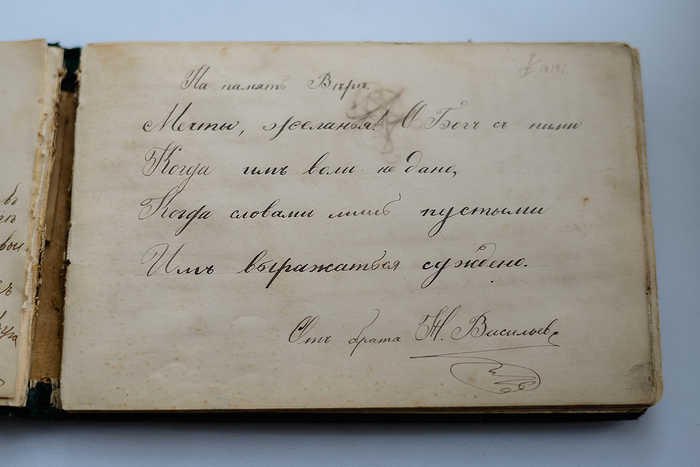 На память Вѣрѣ
Мечты, желанья! О Богъ съ ними
Когда имъ воли не дано,
Когда словами лишь пустыми
Имъ выражаться суждено.
Отъ брата Н. Васильев